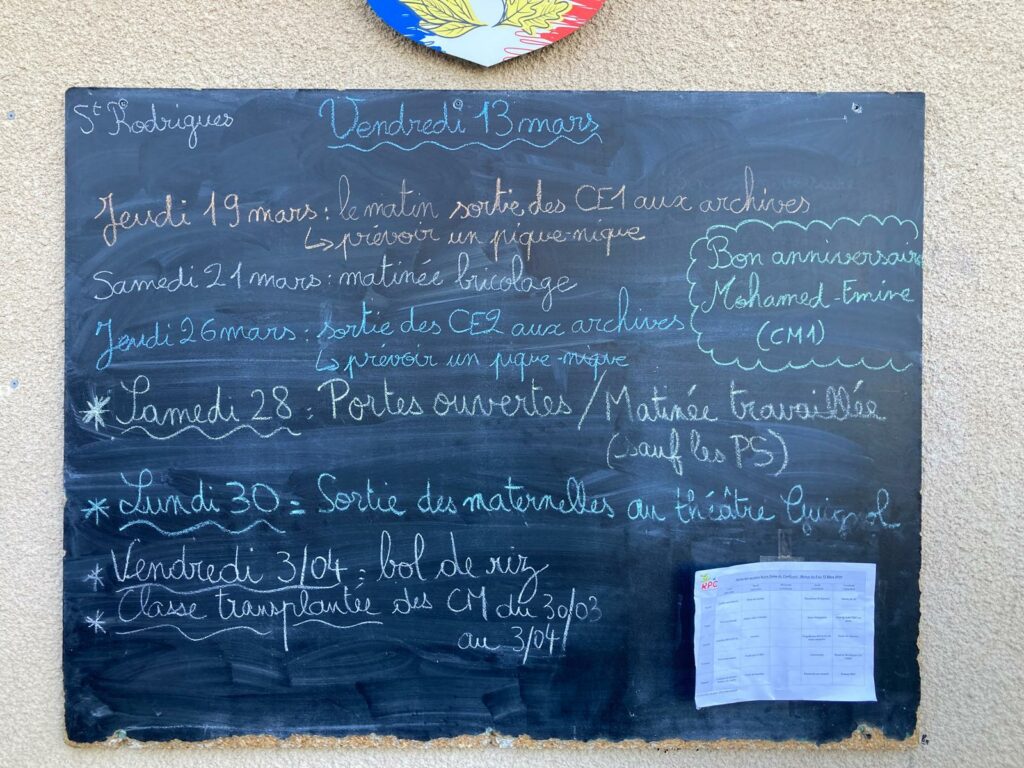 St Rodrigues
Vendredi 13 mars
Jeudi 19 mars : le matin sortie des CE1 aux archives
↳ prévoir un pique-nique
Samedi 21 mars : matinée bricolage
Jeudi 26 mars : sortie des CE2 aux archives
↳ prévoir un pique-nique
Bon anniversaire
Mohamed-Emine
(CM1)
* Samedi 28 : Portes ouvertes / Matinée travaillée
(sauf les PS)
* Lundi 30 = Sortie des maternelles au théâtre Guignol
* Vendredi 3/04 : bol de riz
* Classe transplantée des CM du 30/03
au 3/04
RPC